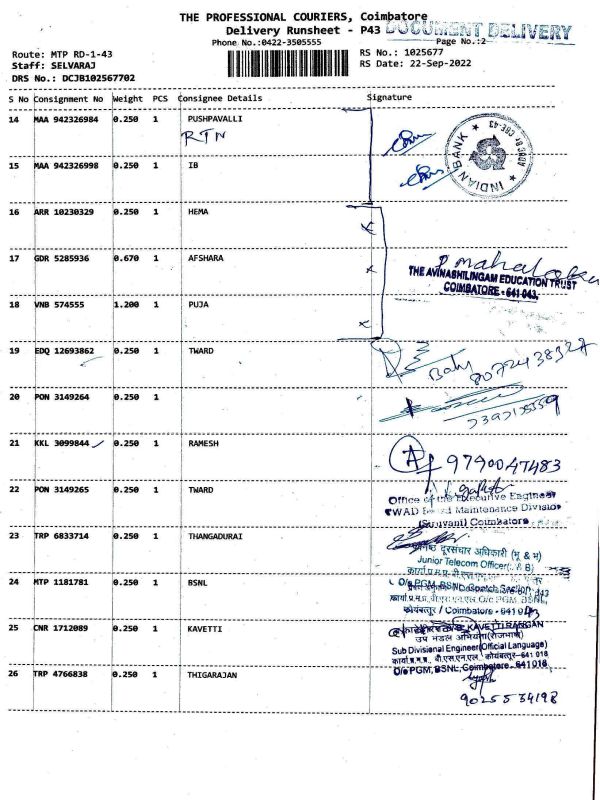 THE PROFESSIONAL COURIERS, Coimbatore
Delivery Runsheet - P43
DOCUMENT DELIVERY
Phone No.:0422-3505555
Page No.:2
Route: MTP RD-1-43
RS No.: 1025677
Staff: SELVARAJ
RS Date: 22-Sep-2022
DRS No.: DCJB102567702
S No Consignment No Weight PCS Consignee Details Signature
14 MAA 942326984 0.250 1 PUSHPAVALLI
RTN
INDIAN BANK
15 MAA 942326998 0.250 1 IB
16 ARR 10230329 0.250 1 HEMA
17 GDR 5285936 0.670 1 AFSHARA
P. Mahala
THE AVINASHILINGAM EDUCATION TRUST
COIMBATORE - 641 043.
18 VNB 574555 1.200 1 PUJA
19 EDQ 12693862 0.250 1 TWARD
Baby
8072438327
20 PON 3149264 0.250 1
21 KKL 3099844 0.250 1 RAMESH
A 9790047483
22 PON 3149265 0.250 1 TWARD
Office of the Executive Engineer
TWAD Board Maintenance Division
(Siruvani) Coimbatore
23 TRP 6833714 0.250 1 THANGADURAI
कनिष्ठ दूरसंचार अधिकारी (भू & भ)
Junior Telecom Officer
24 MTP 1181781 0.250 1 BSNL
O/o PGM, BSNL,
कोयंबत्तूर / Coimbatore - 641 043
25 CNR 1712089 0.250 1 KAVETTI
KAVETTI RANGAN
उप मंडल अभियंता(राजभाषा)
Sub Divisional Engineer(Official Language)
कोयंबत्तूर-641 018
O/o PGM, BSNL, Coimbatore - 641 018
26 TRP 4766838 0.250 1 THIGARAJAN
9025534198